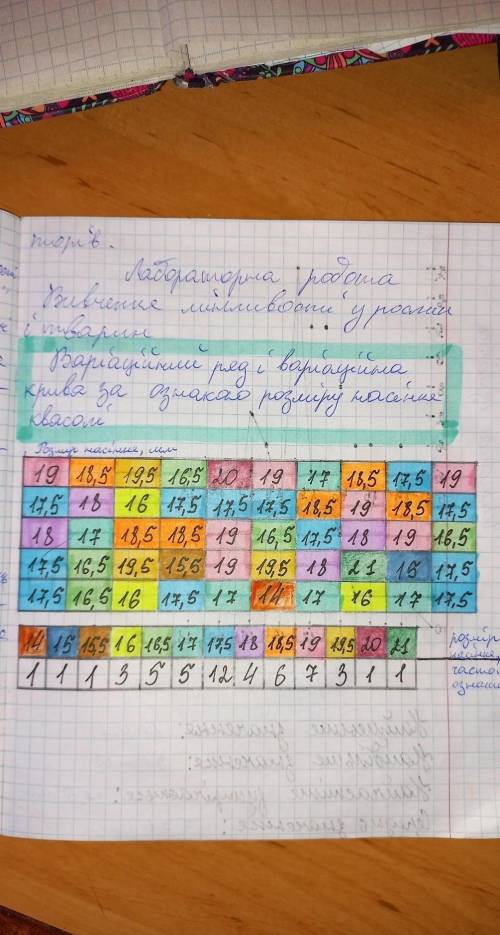 торів.
Лабораторна робота
Вивчення мінливості у рослин
і тварин
Варіаційний ряд і варіаційна
крива за ознакою розміру насіння
квасолі
Розмір насіння, мм
19 18,5 19,5 16,5 20 19 17 18,5 17,5 19
17,5 18 16 17,5 17,5 17,5 18,5 19 18,5 17,5
18 17 18,5 18,5 19 16,5 17,5 18 19 16,5
17,5 16,5 19,5 15,5 19 19,5 18 21 15 17,5
17,5 16,5 16 17,5 17 14 17 16 17 17,5
14 15 15,5 16 16,5 17 17,5 18 18,5 19 19,5 20 21 розмір
насіння,
1 1 1 3 5 5 12 4 6 7 3 1 1 часто
ознаки